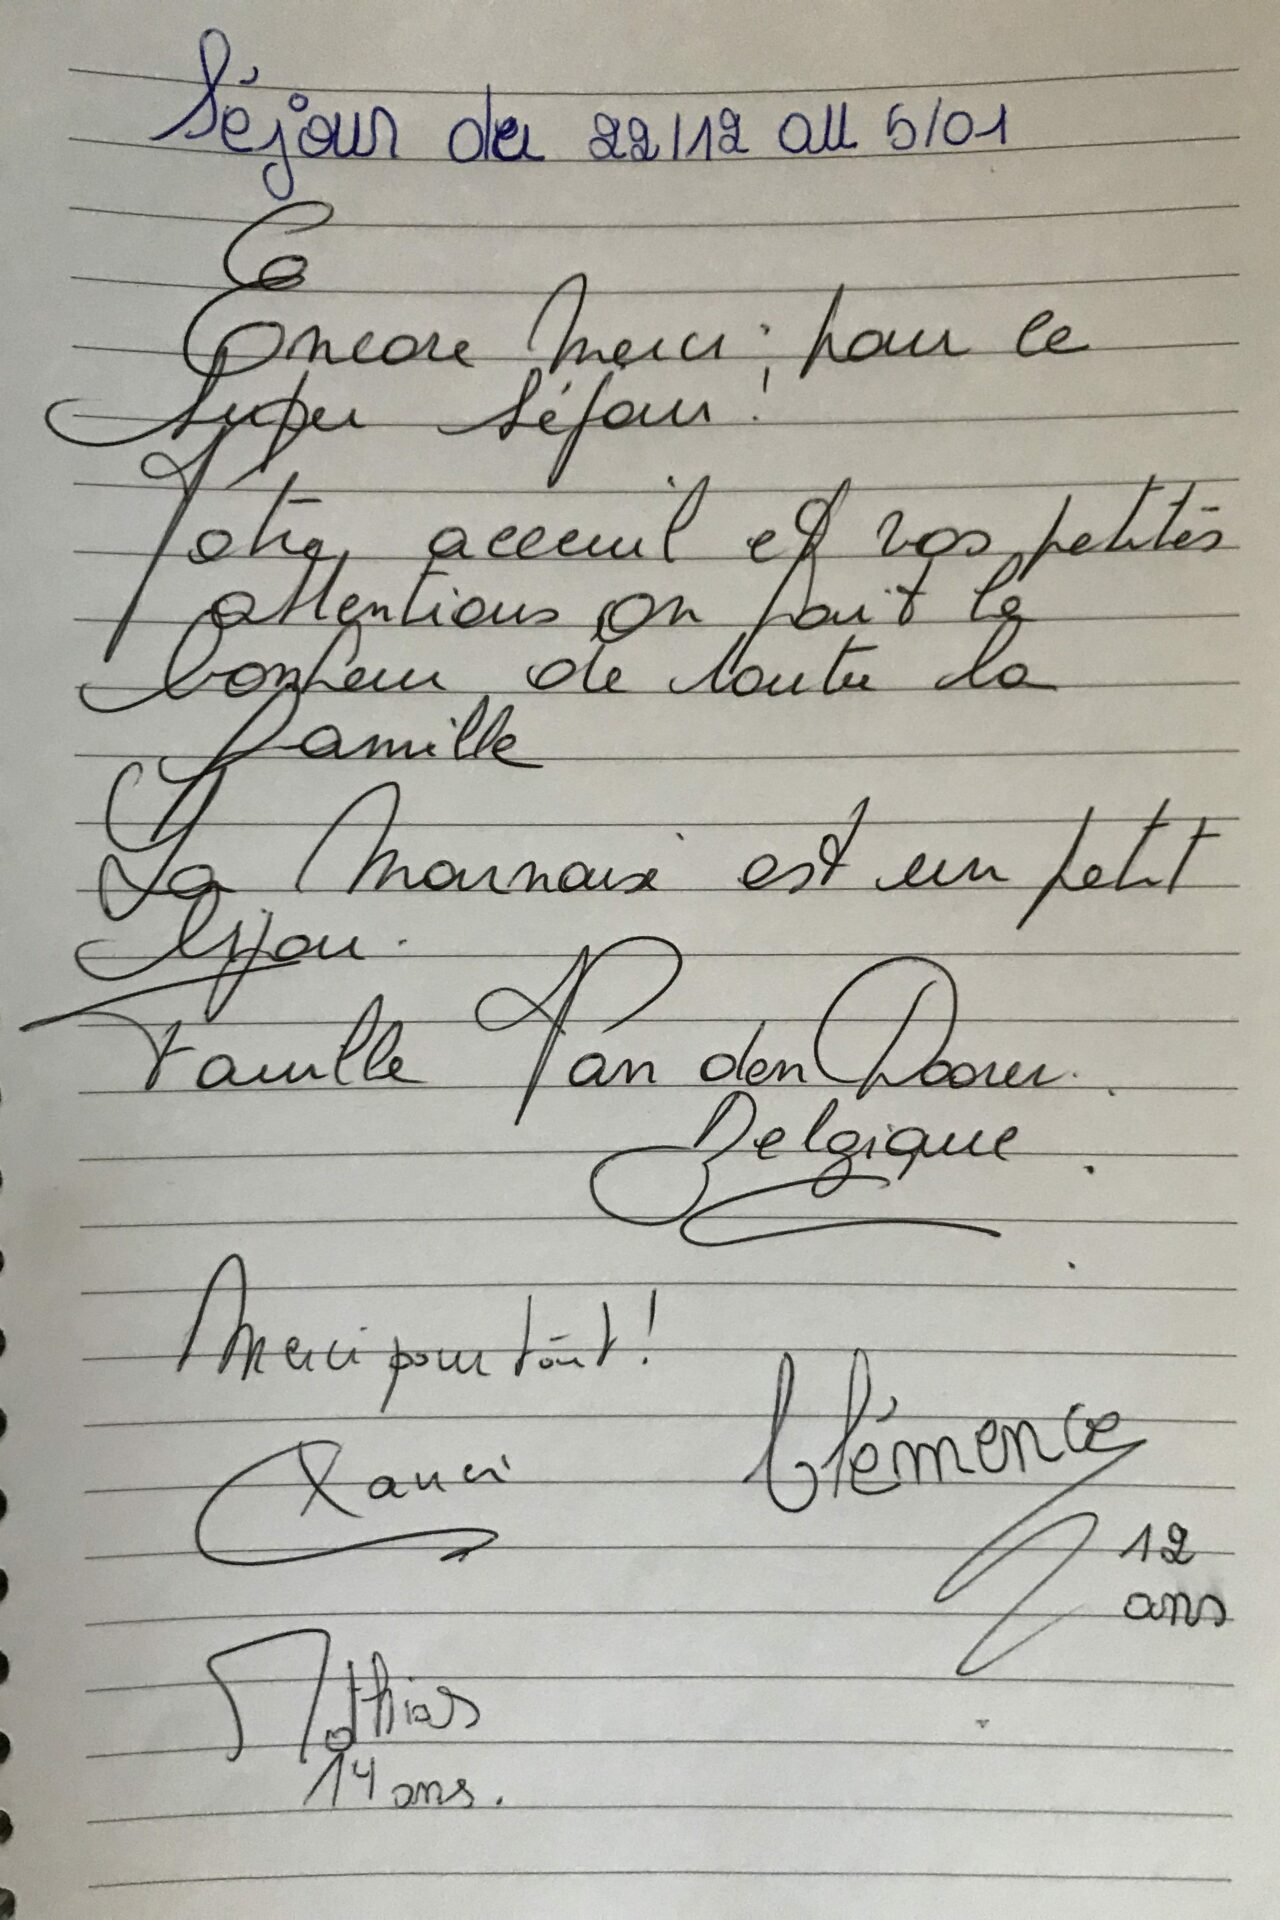 Séjour du 22/12 au 5/01
Encore merci pour ce
super séjour !
Votre acceuil et vos petites
attentions on fait le
bonheur de toute la
famille
La Marnaise est un petit
bijou.
Famille Van den
Belgique
Merci pour tout !
Clémence
Xavier
12
ans
Mathias
14 ans.